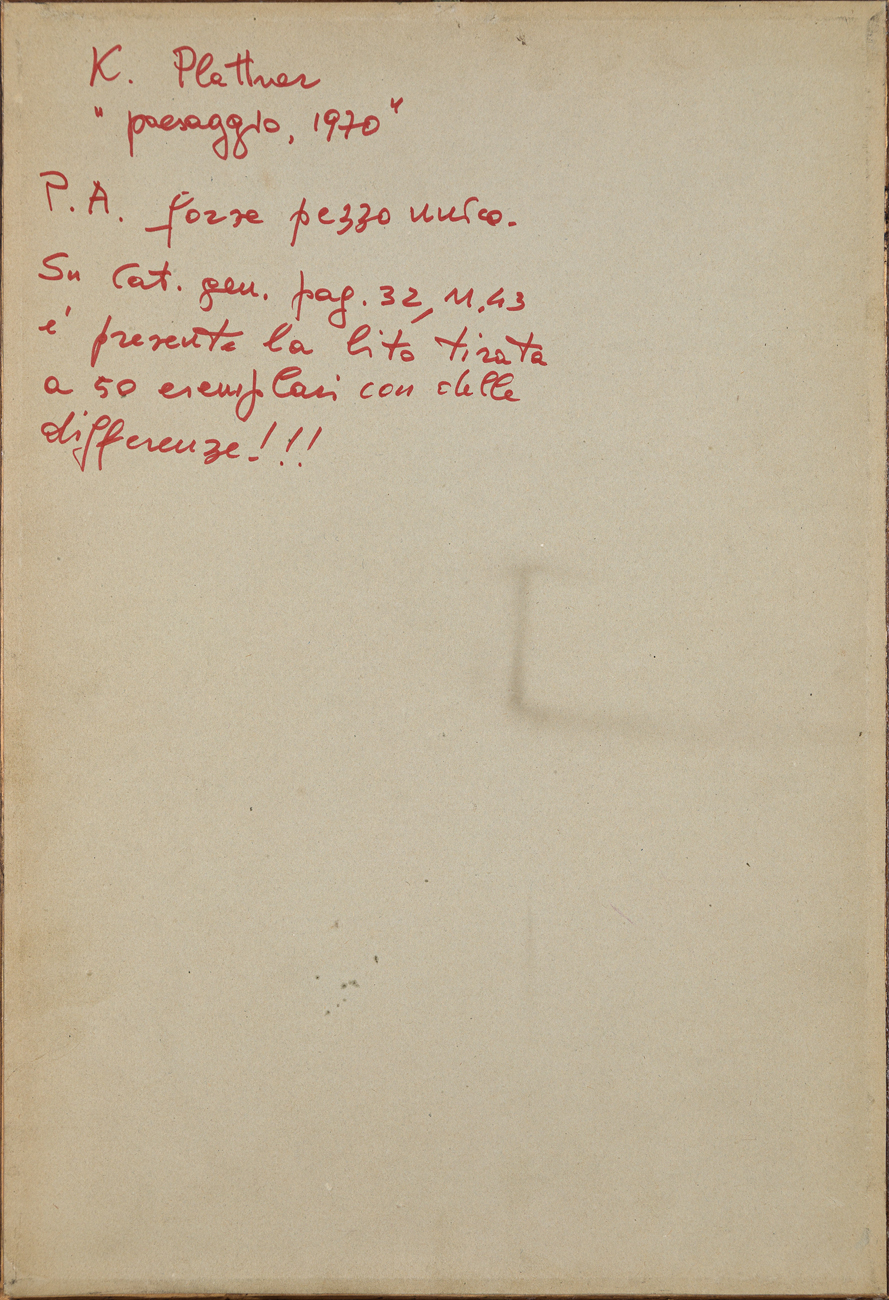 K. Plattner
"paesaggio, 1970"
P.A. forse pezzo unico.
Su Cat. gen. pag. 32, n. 43
e' presente la lito tirata
a 50 esemplari con delle
differenze!!!